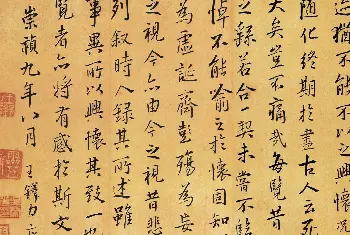 猶不能不以之興懷況
隨化終期於盡古人云死
大矣豈不痛哉每覽昔
之若合一契未嘗不
悼不能喻之於懷固知
為虛誕齊彭殤為妄
之視今亦由今之視昔悲
列敘時人錄其所述雖
事異所以興懷其致一也
覽者亦將有感於斯文
崇禎九年八月 王鐸力